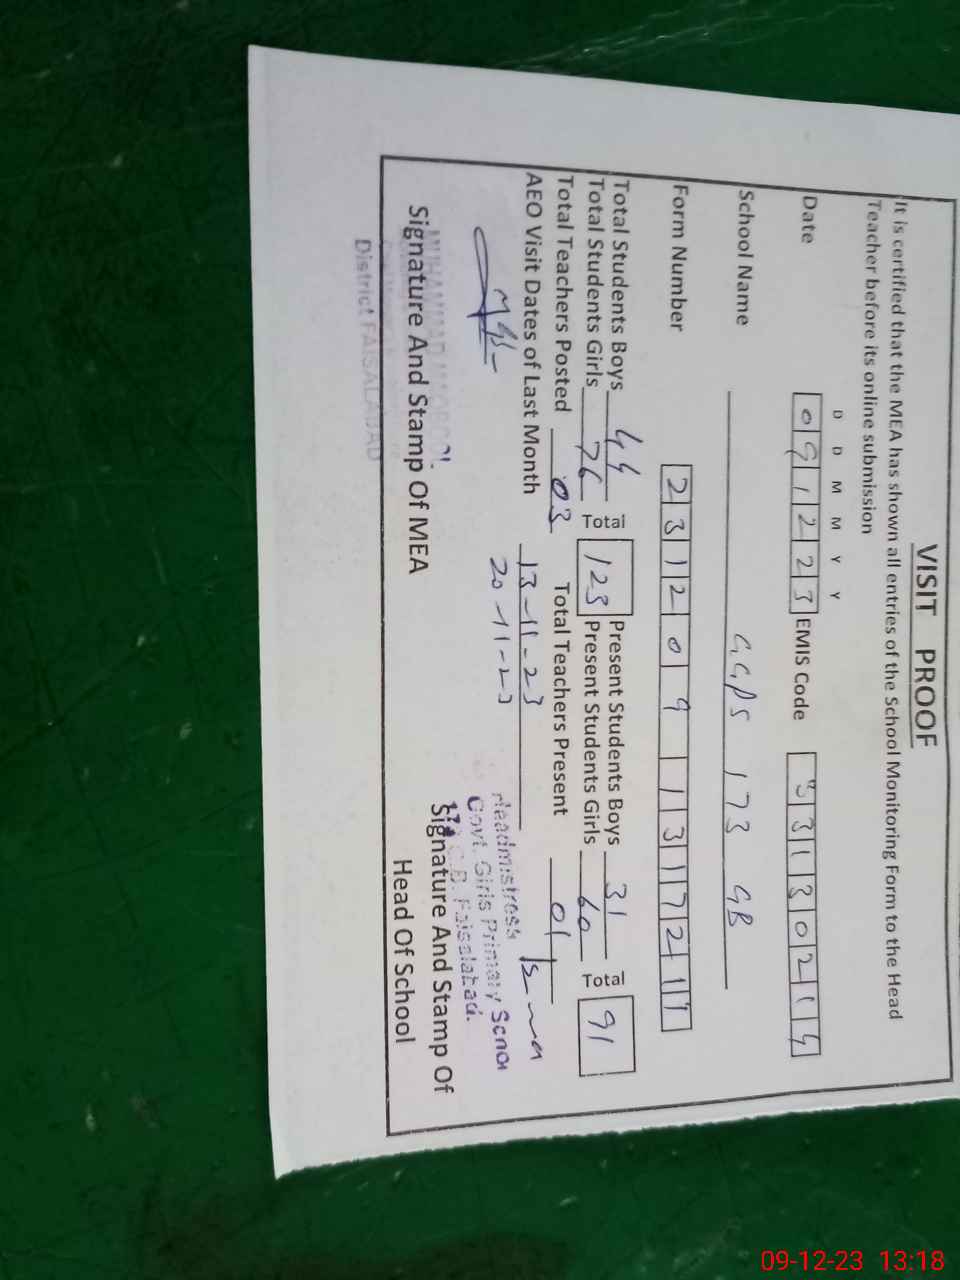 VISIT PROOF
It is certified that the MEA has shown all entries of the School Monitoring Form to the Head
Teacher before its online submission
D D M M Y Y
Date 091223 EMIS Code 33130214
School Name GGPS 173 GB
Form Number 2312091317211
Total Students Boys 44 Total Present Students Boys 31 Total
Total Students Girls 76 123 Present Students Girls 60 91
Total Teachers Posted 03 Total Teachers Present 01
AEO Visit Dates of Last Month 13-11-23
20-11-23
Headmistress
Govt. Girls Primary
G.B. Faisalabad.
Signature And Stamp Of MEA
Signature And Stamp Of
Head Of School
MUHAMMAD
District FAISALABAD
09-12-23 13:18